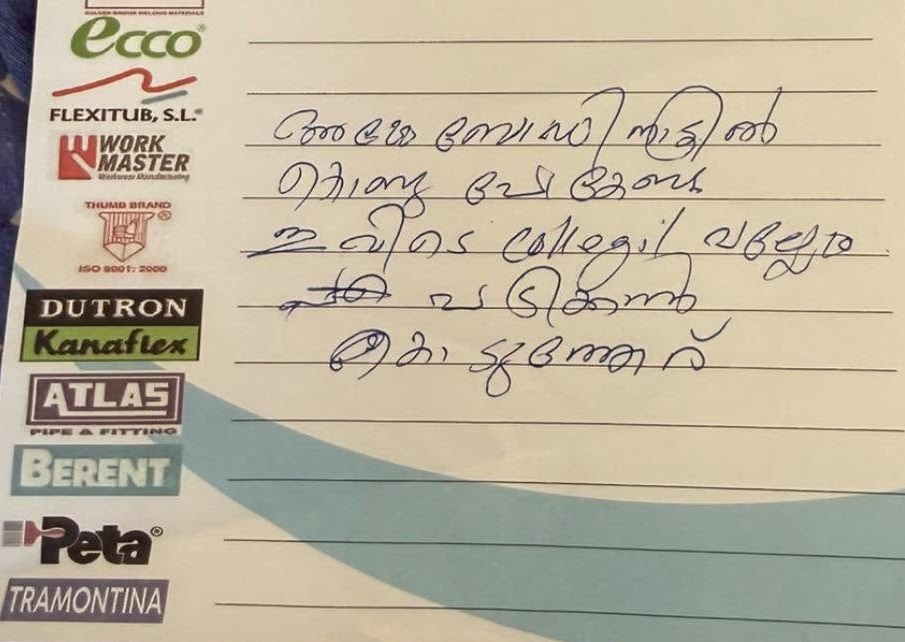 GOLDEN BRIDGE WELDING MATERIALS
ecco®
FLEXITUB, S.L.®
WORK
MASTER
Workwear Manufacturing
THUMB BRAND
®
ISO 9001: 2000
DUTRON
Kanaflex
ATLAS
PIPE & FITTING
BERENT
Peta®
TRAMONTINA
ബോഡി നാട്ടിൽ
കൊണ്ടു പോകേണ്ട
ഇവിടെ College ൽ
പഠിക്കാൻ
കൊടുത്തേര്